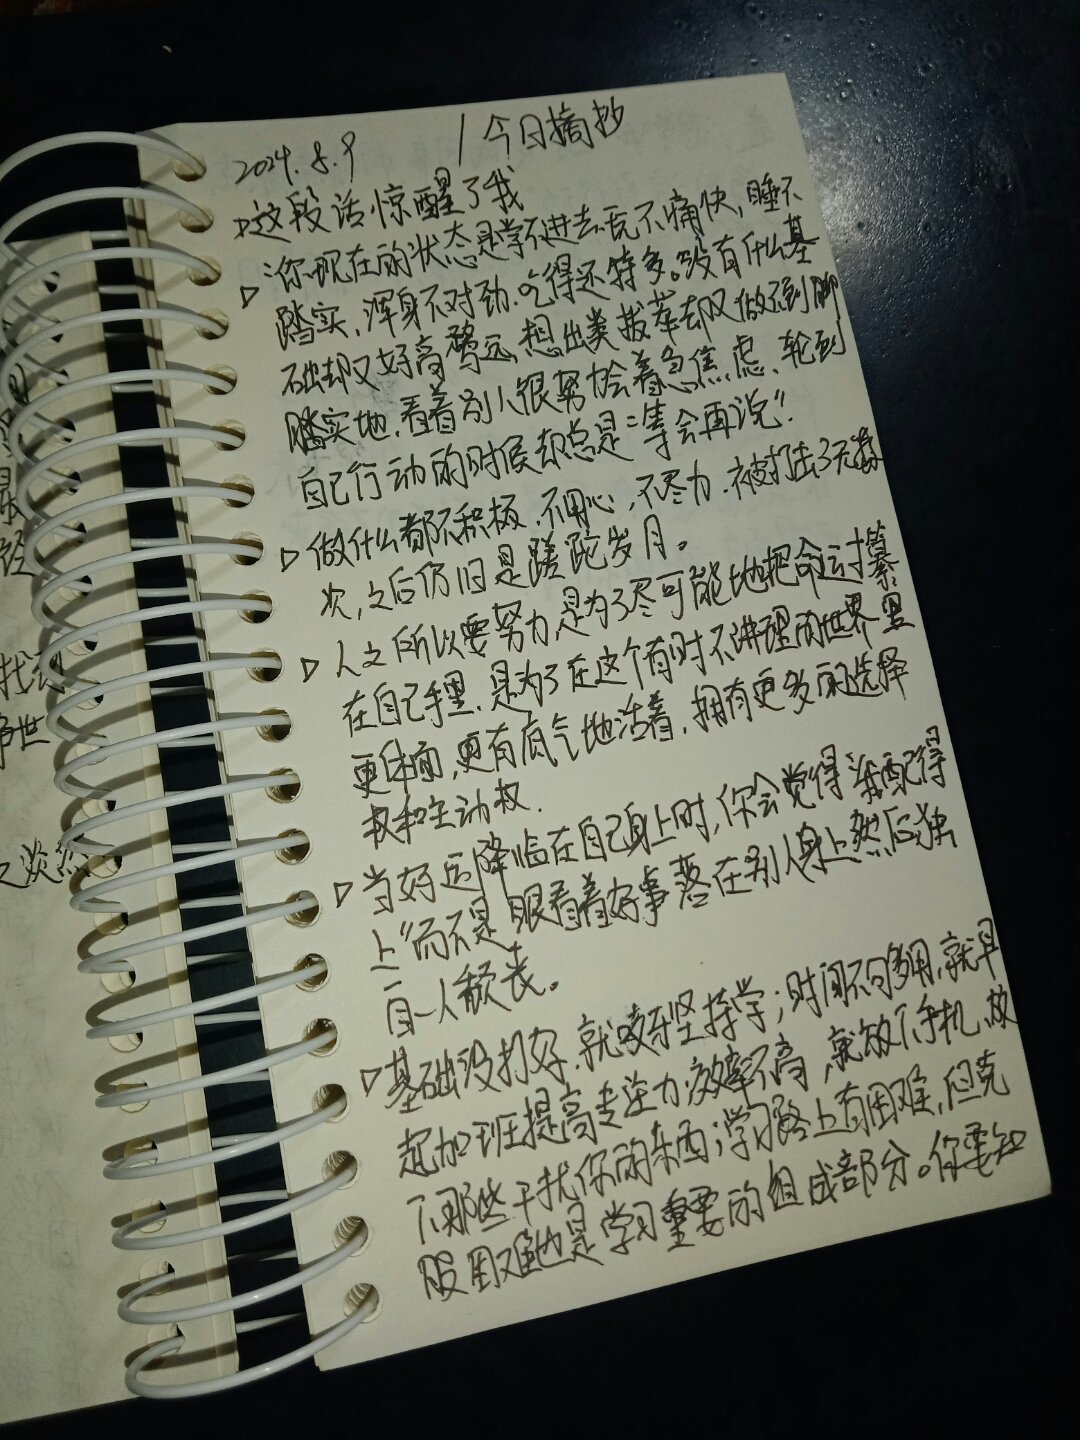 2024.8.9 / 今日摘抄
▷这段话惊醒了我
▷"你现在的状态是学不进去,玩不痛快,睡不
踏实,浑身不对劲.吃得还特多。没有什么基
础却又好高骛远,想出类拔萃却又做不到脚
踏实地.看着别人很努力会着急焦虑、轮到
自己行动的时候却总是"等会再说".
▷做什么都不积极.不用心,不尽力.被打击了无数
次,之后仍旧是蹉跎岁月。
▷人之所以要努力,是为了尽可能地把命运才纂
在自己手里.是为了在这个有时不讲理的世界里
更体面,更有底气地活着,拥有更多的选择
权和主动权.
▷当好运降临在自己身上时,你会觉得"我配得
上"而不是眼看着好事落在别人身上然后独
自一人颓丧。
▷基础没打好.就咬牙坚持学;时间不够用,就早
起加班提高专注力;效率不高,就放下手机,放
下那些干扰你的东西;学习路上有困难,但克
服困难也是学习重要的组成部分。你要知
最
经
找到
世
之淡然